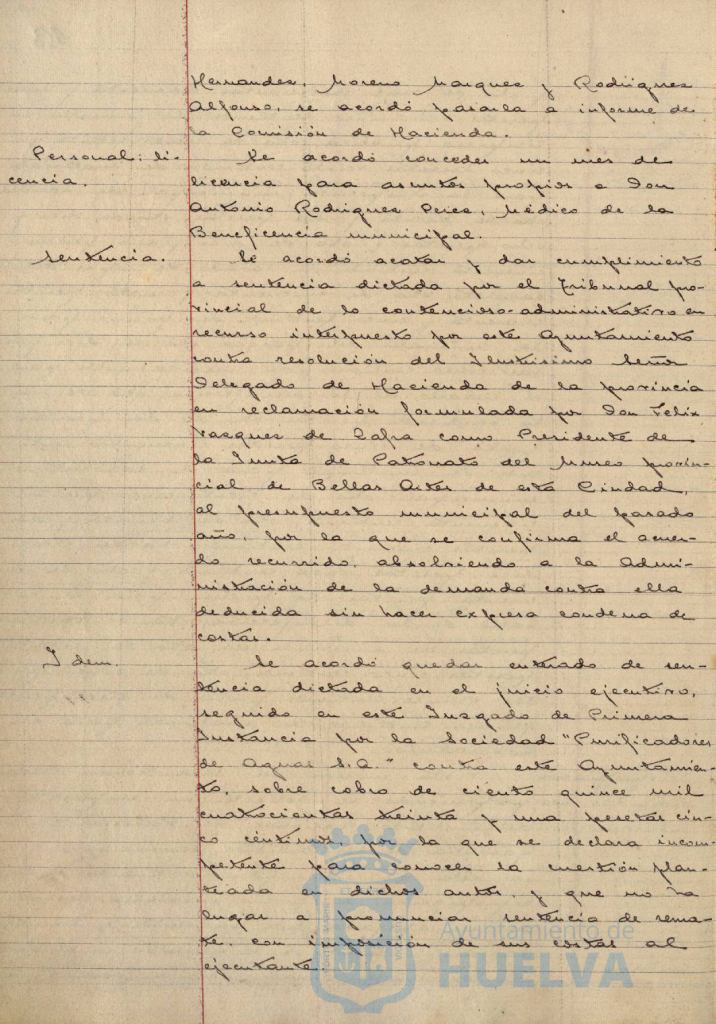 Hernandez, Moreno Marquez y Rodriguez
Alfonso, se acordó pasarla a informe de
la Comisión de Hacienda.
Personal: li-
cencia.
Se acordó conceder un mes de
licencia para asuntos propios a Don
Antonio Rodriguez Perez, Médico de la
Beneficencia municipal.
Sentencia.
Se acordó acatar y dar cumplimiento
a sentencia dictada por el Tribunal pro-
vincial de lo contencioso-administrativo en
recurso interpuesto por este Ayuntamiento
contra resolución del Ilustrisimo Señor
Delegado de Hacienda de la provincia
en reclamación formulada por Don Felix
Vazquez de Zafra como Presidente de
la Junta de Patronato del Museo provin-
cial de Bellas Artes de esta Ciudad,
al presupuesto municipal del pasado
año, por la que se confirma el acuer-
do recurrido, absolviendo a la Admi-
nistración de la demanda contra ella
deducida sin hacer expresa condena de
costas.
Idem.
Se acordó quedar enterado de sen-
tencia dictada en el juicio ejecutivo,
seguido en este Juzgado de Primera
Instancia por la Sociedad "Purificadores
de Aguas S.A." contra este Ayuntamien-
to, sobre cobro de ciento quince mil
cuatrocientas treinta y una pesetas cin-
co céntimos, por la que se declara incom-
petente para conocer la cuestión plan-
teada en dichos autos, y que no ha
lugar a pronunciar sentencia de rema-
te, con imposición de sus costas al
ejecutante.
Ayuntamiento de
HUELVA